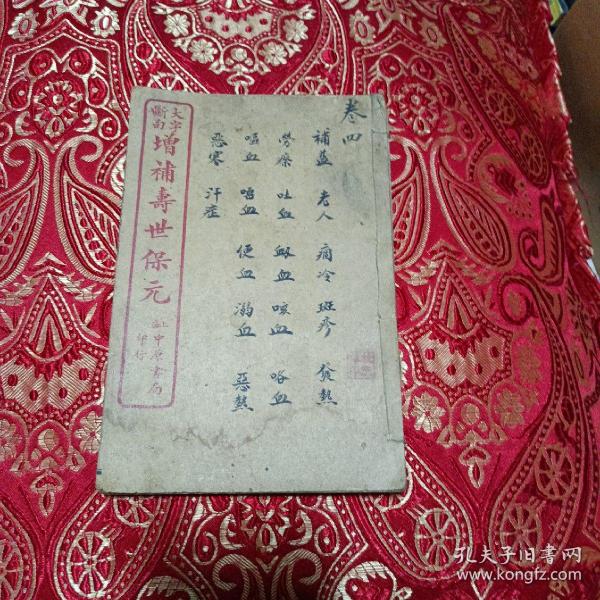 卷四
補益 老人 痼冷 斑疹 發熱
勞瘵 吐血 衂血 咳血 咯血
嘔血 唱血 便血 溺血 惡熱
惡寒 汗症
大字
斷句
增補壽世保元
中原書局
印行
孔夫子旧书网
www.kongfz.com